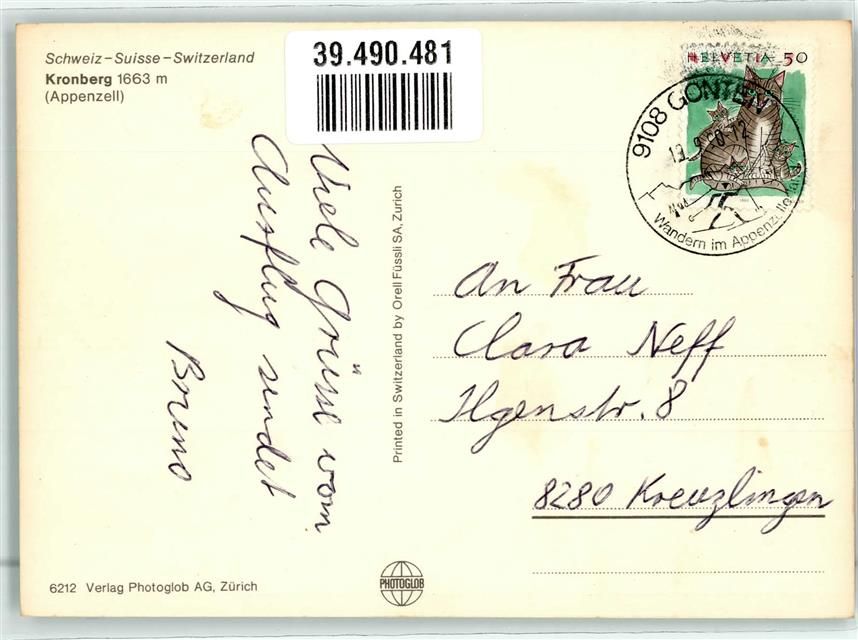 Schweiz–Suisse–Switzerland
Kronberg 1663 m
(Appenzell)
39.490.481
HELVETIA 50
9108 GONTEN
Wandern im Appenzellerland
Viele Grüsse vom
Ausflug sendet
Bruno
Printed in Switzerland by Orell Füssli SA, Zurich
An Frau
Clara Neff
Ilgenstr. 8
8280 Kreuzlingen
6212 Verlag Photoglob AG, Zürich
PHOTOGLOB